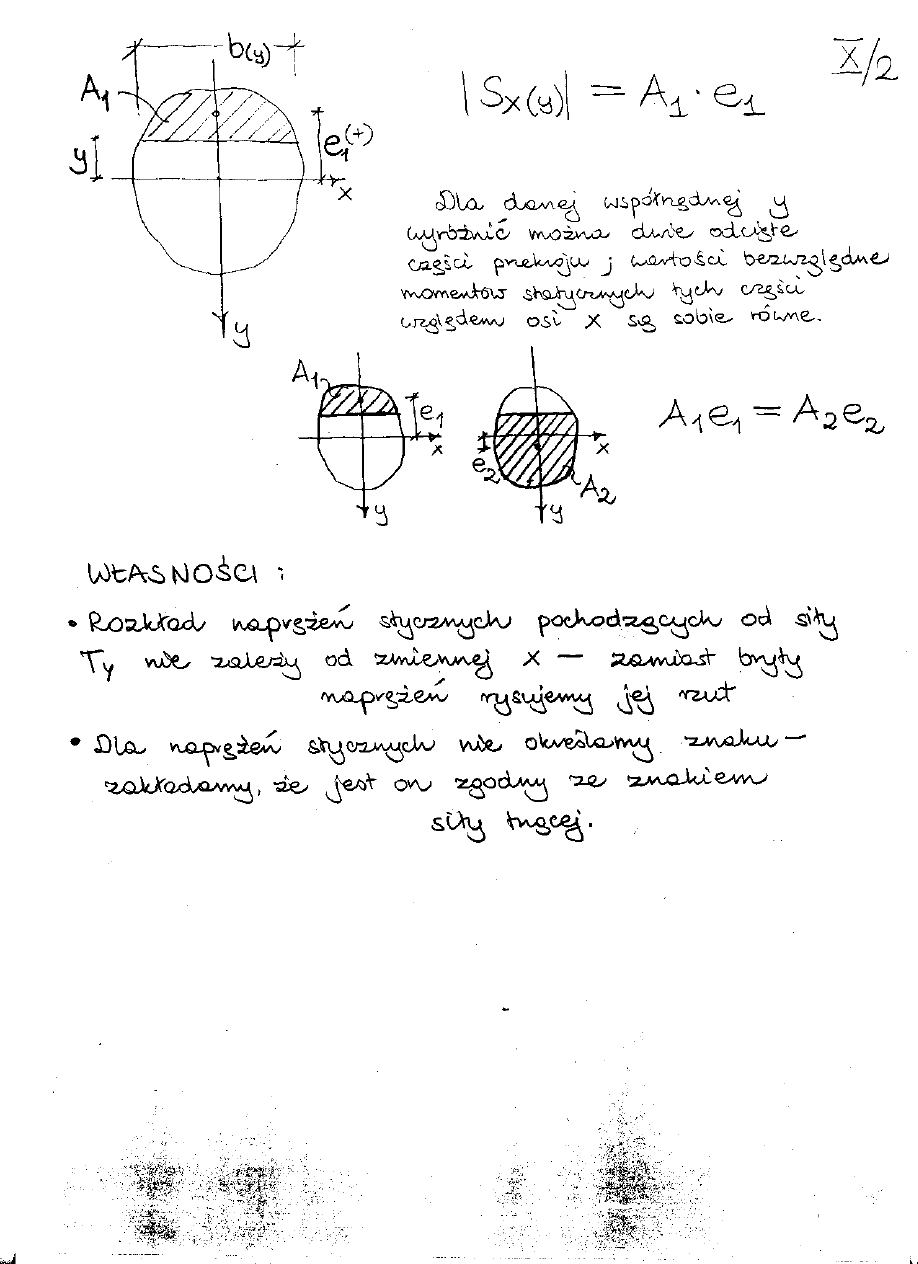 X/2
b(y)
A1
y
e1(+)
x
y
|Sx(y)| = A1 · e1
Dla danej współrzędnej y
wyróżnić można dwie odcięte
części przekroju ; wartości bezwzględne
momentów statycznych tych części
względem osi x są sobie równe.
A1
e1
x
y
e2
x
A2
y
A1e1 = A2e2
WŁASNOŚCI :
• Rozkład naprężeń stycznych pochodzących od siły
Ty nie zależy od zmiennej x — zamiast bryły
naprężeń rysujemy jej rzut
• Dla naprężeń stycznych nie określamy znaku —
zakładamy, że jest on zgodny ze znakiem
siły tnącej.